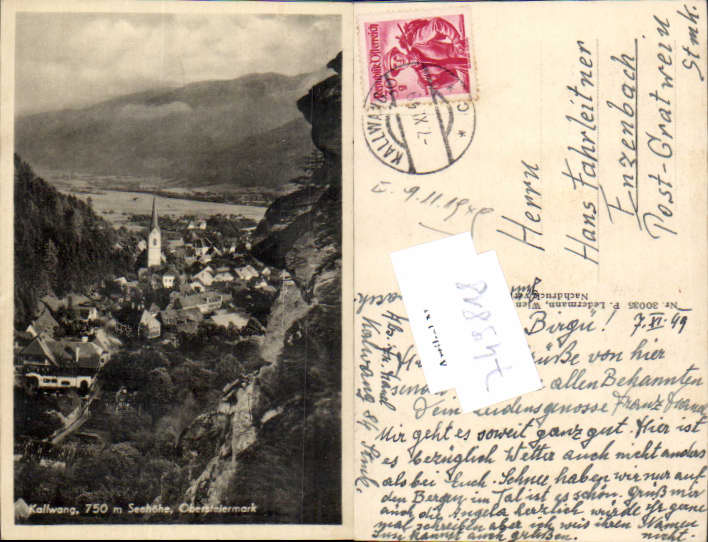 Kallwang, 750 m Seehöhe, Obersteiermark
Republik Österreich
KALLWANG
E. 9.11.1949
Herrn
Hans Fahrleitner
Enzenbach
Post-Gratwein
Stmk.
Nr. 30035 P. Ledermann, Wien
Nachdruck
Artikel
745818
7.XI.49
Birgü!
von hier
allen Bekannten
Dein Leidensgenosse Franz
Mir geht es soweit ganz gut. Hier ist
es bezüglich Wetter auch nicht anders
als bei Euch. Schnee haben wir nur auf
den Bergen im Tal ist es schön. Grüß mir
auch die Angela herzlich würde ihr gerne
mal schreiben aber ich weis ihren Namen
nicht.
kannst auch grüßen.
Kalwang 81 Stmk.